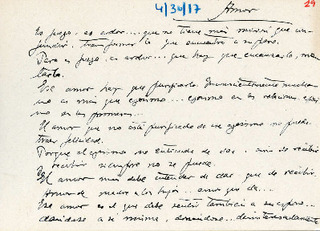 4/30/17 29
Amor
Es fuego, es ardor... que no tiene más misión que
transformar lo que encuentra a su paso.
Pero es fuego, es ardor... que hay que encauzarlo,
Ese amor hay que purificarlo. Frecuentemente
no es más que egoísmo... egoísmo en las relaciones
en las
El amor que no está purificado de ese egoísmo no puede
traer felicidad.
Porque el egoísmo no entiende de dar, sino de recibir
y recibir siempre no se puede.
El amor más debe entender de dar que de recibir.
Amor de madre a los hijos... amor que da...
Ese amor es el que debe sentir también a su esposo...
dándose a sí misma, donándose... desinteresadamente